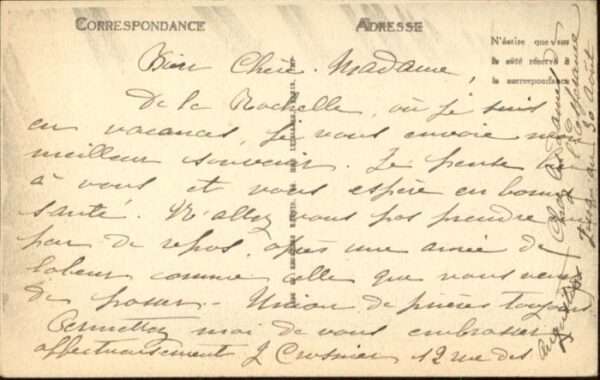 CORRESPONDANCE ADRESSE
N'écrire que sur
le côté réservé à
la correspondance
Bien Chère Madame,
De la Rochelle, où je suis
en vacances, je vous envoie mon
meilleur souvenir. Je pense
à vous et vous espère en bonne
santé. N'allez vous pas prendre un
peu de repos, après une année de
labeur comme celle que vous venez
de passer - Union de prières toujours
Permettez moi de vous embrasser
affectueusement J Crosnier 12 rue des
Chez
jusqu'au 30 Août